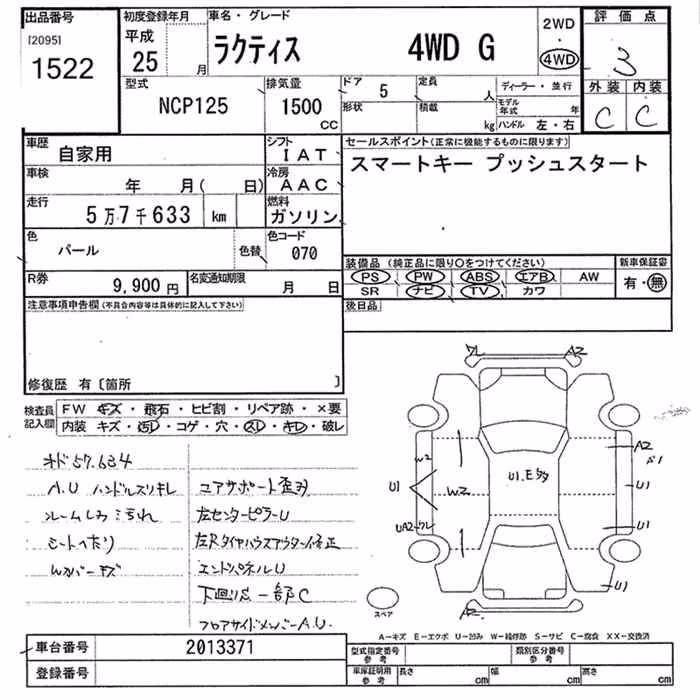 出品番号 初度登録年月 車名・グレード 2WD 評価点
[2095] 平成
1522 25 月 ラクティス 4WD G 4WD 3
型式 排気量 ドア 5 定員 人 ディーラー・並行 外装 内装
NCP125 1500 cc 形状 積載 kg モデル年式 年 C C
ハンドル 左・右
車歴 自家用 シフト IAT セールスポイント(正常に機能するものに限ります)
車検 年 月( 日) 冷房 AAC スマートキー プッシュスタート
走行 5万7千633 km 燃料 ガソリン
色 パール 色替 色コード 070
装備品(純正品に限り○をつけてください) 新車保証書
R券 9,900円 名変通知期限 月 日 PS PW ABS エアB AW 有・無
SR ナビ TV カワ
注意事項申告欄(不具合内容等は具体的に記入して下さい) 後日品
修復歴 有〔箇所 〕
検査員記入欄 FW キズ・飛石・ヒビ割・リペア跡・×要
内装 キズ・汚レ・コゲ・穴・スレ・キレ・破レ
オド57.634
A.U ハンドルスリキレ コアサポート歪み
ルームしみ汚れ 左センターピラーU
シートへたり 左Rタイヤハウスアウター修正
Wカバーキズ エンドパネルU
下回り 一部C
フロアサイドメンバーA.U.
ワレ A2
A2
W2 U1.E多 A1
U1 W2 U1
UA2-ワレ U1
U1
スペア A2
A-キズ E-エクボ U-凹み W-補修跡 S-サビ C-腐食 XX-交換済
車台番号 2013371 型式指定番号 参考 類別区分番号 参考
登録番号 車庫証明用 参考 長さ cm 幅 cm 高さ cm